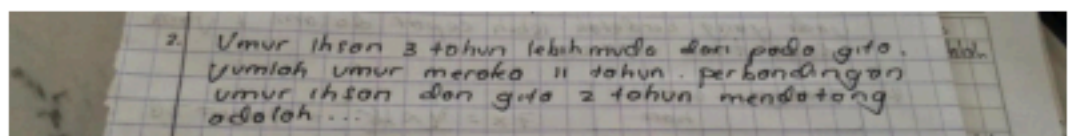 2. Umur ihsan 3 tahun lebih muda dari pada gita.
Jumlah umur mereka 11 tahun. perbandingan
umur ihsan dan gita 2 tahun mendatang
adalah ...